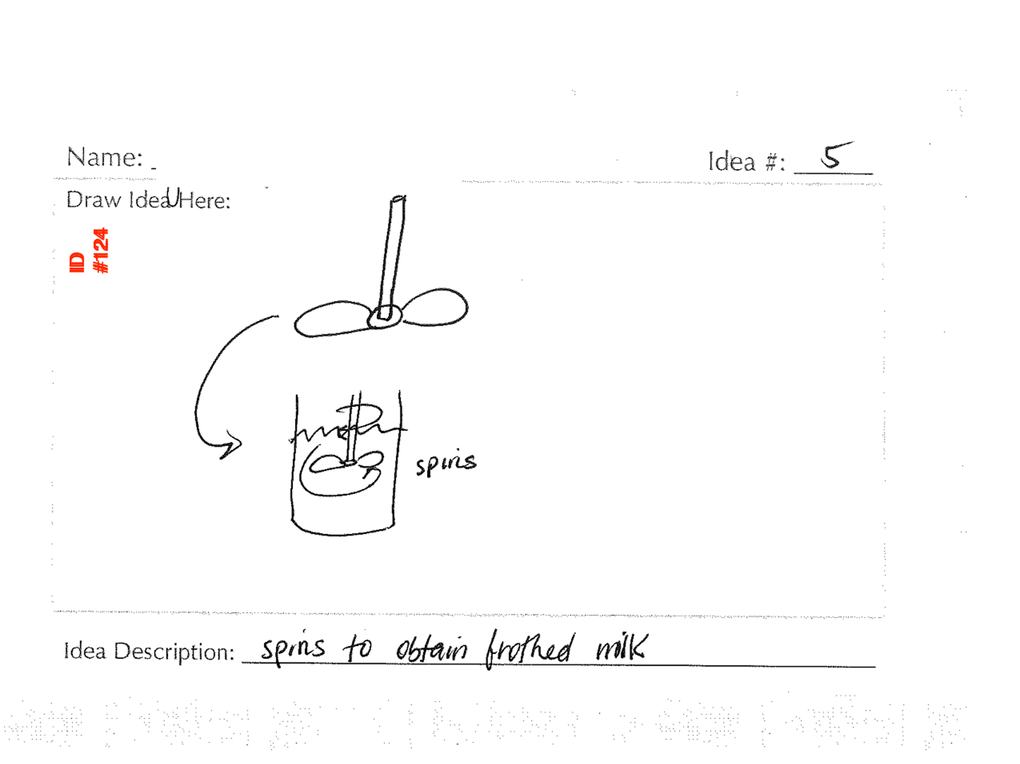 Name:
Idea #: 5
Draw Idea Here:
ID
#124
spins
Idea Description: spins to obtain frothed milk